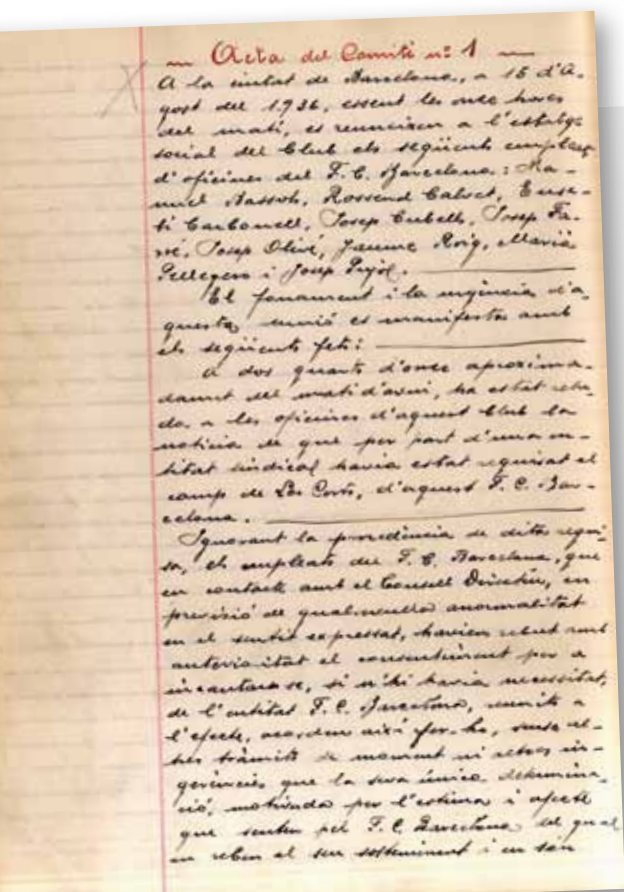 Acta del Comitè nº 1
A la ciutat de Barcelona, a 15 d'A-
gost del 1936, essent les onze hores
del matí, es reuneixen a l'estatge
social del Club els següents empleats
d'oficines del F. C. Barcelona: Ma-
nuel Bassols, Rossend Calvet, Euse-
bi Carbonell, Josep Cubells, Josep Fa-
rré, Josep Olivé, Jaume Roig, Marià
Pellegero i Josep Pujol.
El fonament i la urgència d'a-
questa reunió es manifesta amb
els següents fets:
A dos quarts d'onze aproxima-
dament del matí d'avui, ha estat rebu-
da a les oficines d'aquest Club la
notícia de que per part d'una en-
titat sindical havia estat requisat el
camp de Les Corts, d'aquest F. C. Bar-
celona.
Ignorant la procedència de dita requi-
sa, els empleats del F. C. Barcelona, que
en contacte amb el Consell Directiu, en
previsió de qualsevulla anormalitat
en el sentit expressat, havien rebut amb
anterioritat el consentiment per a
incautar-se, si n'hi havia necessitat,
de l'entitat F. C. Barcelona, reunits a
l'efecte, acorden així fer-ho, sense al-
tres tràmits de moment ni altres in-
gerències que la seva única determina-
ció, motivada per l'estima i afecte
que senten pel F. C. Barcelona del qual
en reben el seu sosteniment i en són